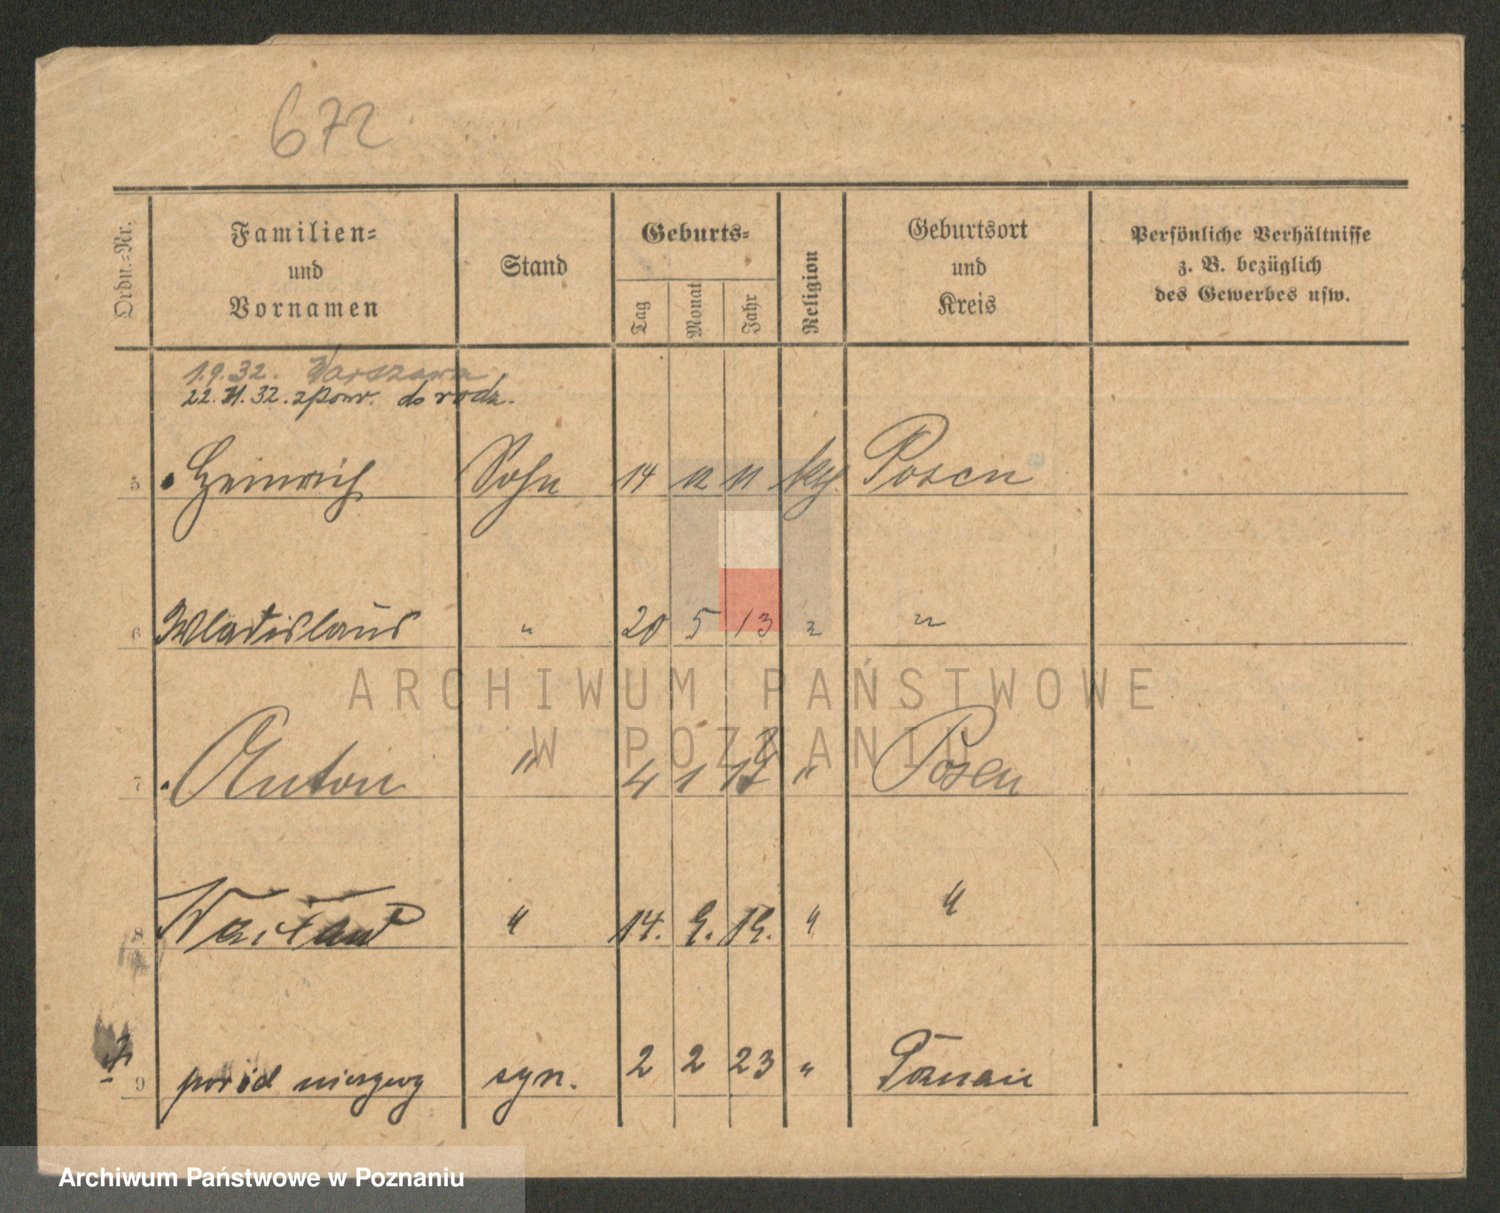 672
Ordn.-Nr.
Familien-
und
Vornamen
Stand
Geburts-
Tag
Monat
Jahr
Religion
Geburtsort
und
Kreis
Persönliche Verhältnisse
z. B. bezüglich
des Gewerbes usw.
1.9.32. Warszawa
22.11.32. z powr. do rodz.
5 Heinrich Sohn 14 12 11 Posen
6 Wladislaus " 20 5 13 " "
7 Anton " 4 1 " Posen
8 " 14. 9. 19. " "
9 poród nieżywy syn. 2 2 23 " Poznań
ARCHIWUM PAŃSTWOWE
W POZNANIU
Archiwum Państwowe w Poznaniu